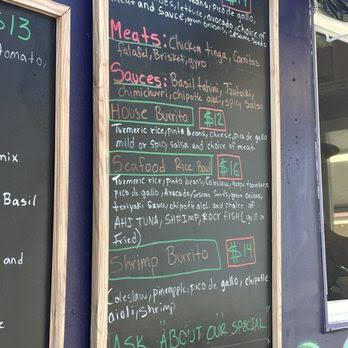 $13
tomato,
mix
Basil
and
pico de gallo,
meat and sauce, green onions, sesame seeds
Meats: Chicken tinga, Carnitas
falafel, Brisket, gyro
Sauces: Basil tahini, Tzatziki,
chimichurri, chipotle aioli, spicy Salsa
House Burrito $12
Turmeric rice, pinto beans, cheese, pico de gallo
mild or spicy salsa and choice of meat.
Seafood Rice Bowl $16
Turmeric rice, pinto beans, Coleslaw, grape tomatoes
Pico de gallo, Avocado, Sesame Seeds, green onions,
teriyaki Sauce, chipotle aioli and choice of
AHI TUNA, SHRIMP, ROCK FISH (grill or
fried)
Shrimp Burrito $14
Coleslaw, pineapple, pico de gallo, chipotle
aioli, shrimp
ASK "ABOUT OUR SPECIAL"